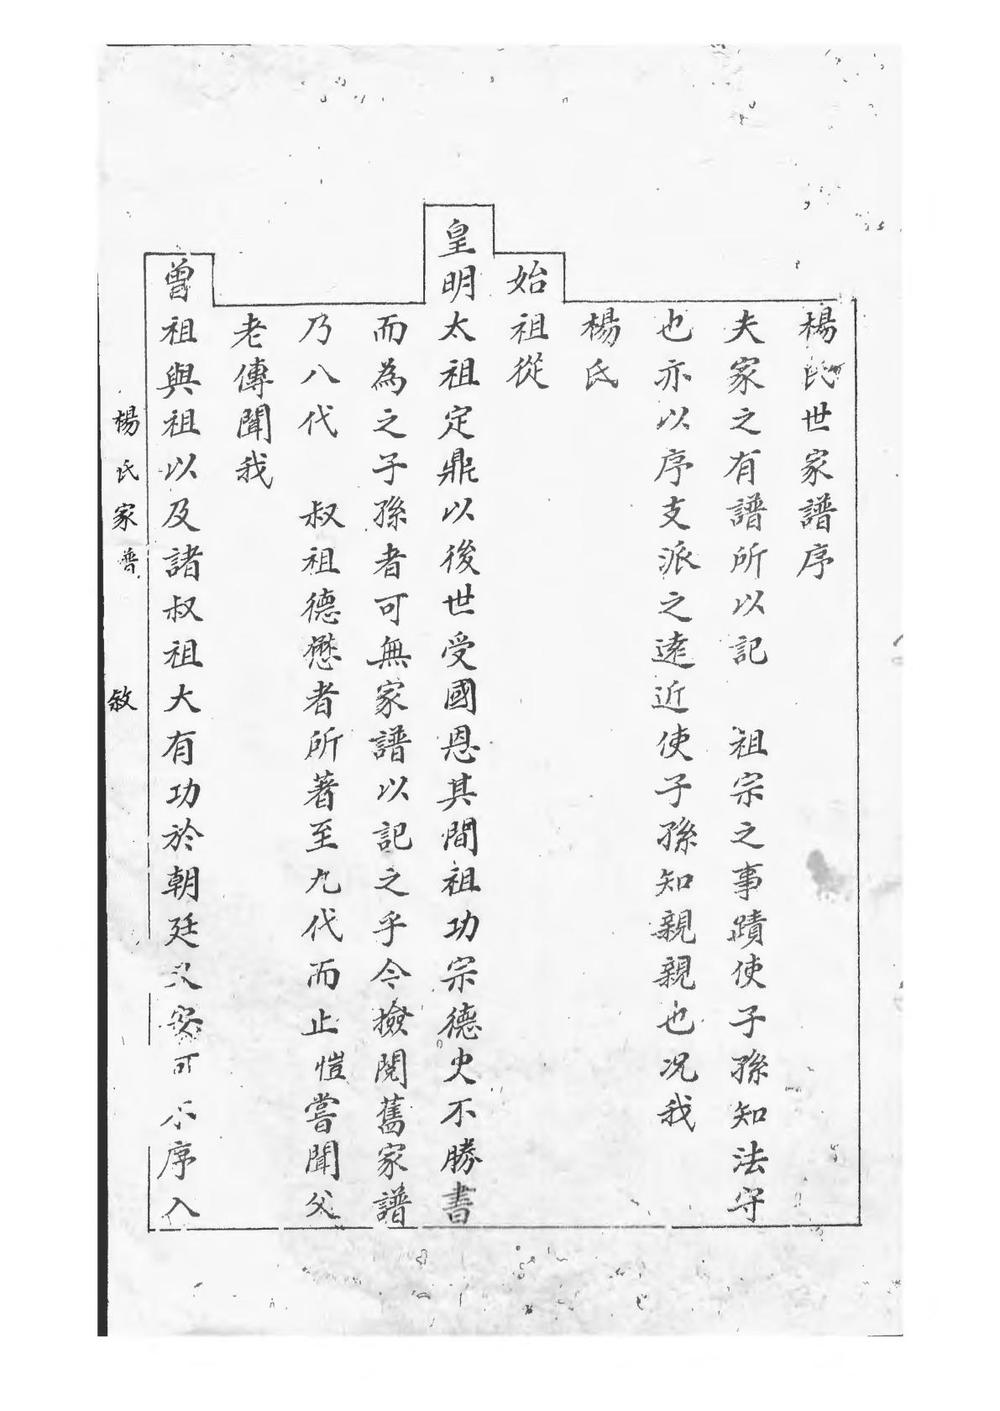 楊氏世家譜序
夫家之有譜所以記　祖宗之事蹟使子孫知法守
也亦以序支派之遠近使子孫知親親也况我
楊氏
始祖從
皇明太祖定鼎以後世受國恩其間祖功宗德史不勝書
而為之子孫者可無家譜以記之乎今撿閱舊家譜
乃八代　叔祖德懋者所著至九代而止愷嘗聞父
老傳聞我
曾祖與祖以及諸叔祖大有功於朝廷又安可不序入
楊氏家普　敘